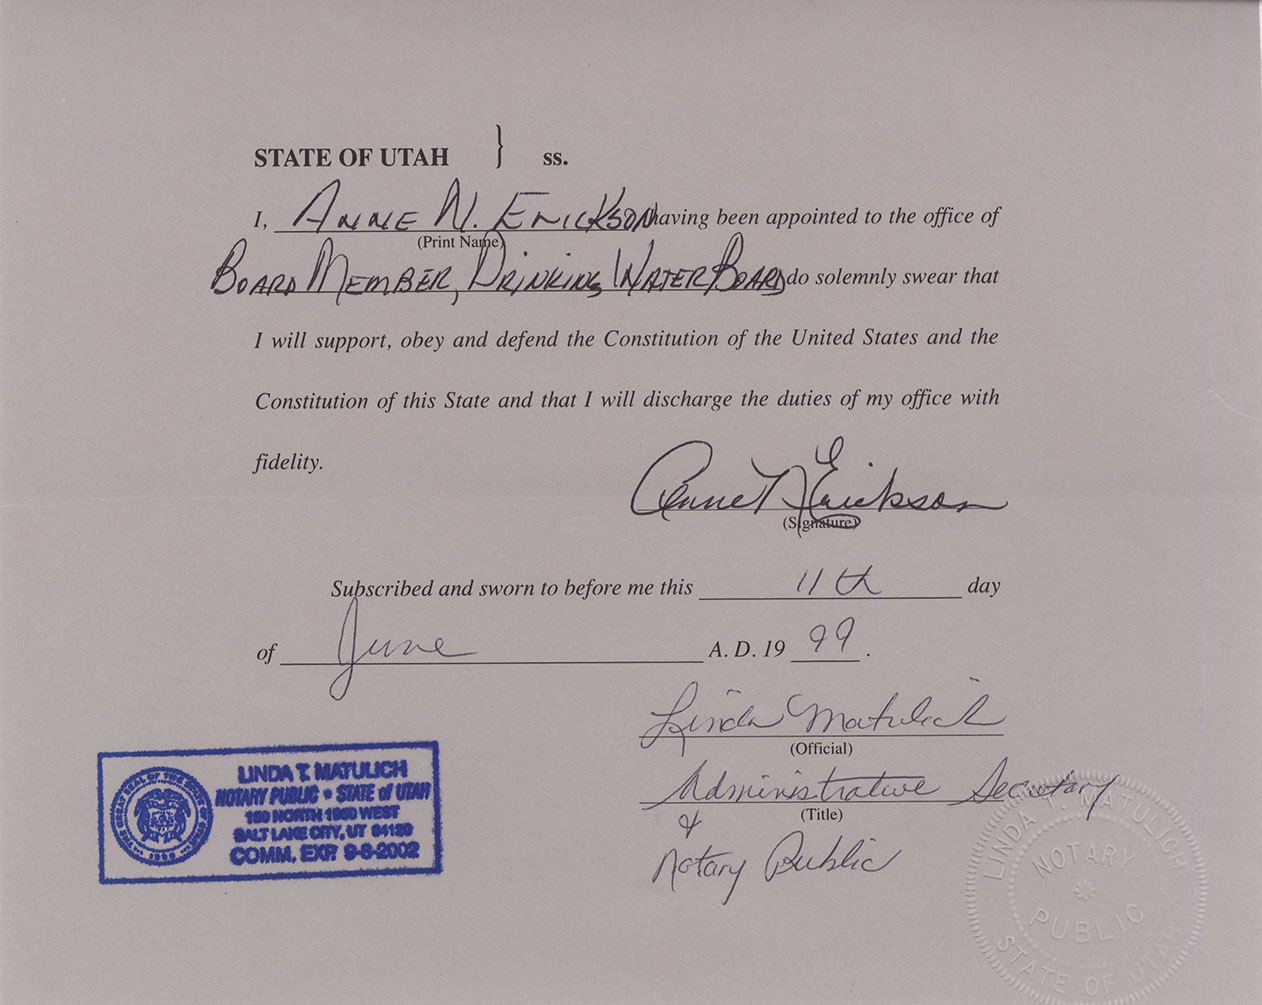 STATE OF UTAH } ss.
I, ANNE N. ERICKSON having been appointed to the office of
(Print Name)
BOARD MEMBER, DRINKING WATER BOARD do solemnly swear that
I will support, obey and defend the Constitution of the United States and the
Constitution of this State and that I will discharge the duties of my office with
fidelity.
Anne N Erickson
(Signature)
Subscribed and sworn to before me this 11th day
of June A. D. 19 99 .
Linda Matulich
(Official)
Administrative Secretary
(Title)
&
Notary Public
LINDA T. MATULICH
NOTARY PUBLIC • STATE of UTAH
150 NORTH 1950 WEST
SALT LAKE CITY, UT
COMM. EXP. 9-8-2002
THE GREAT SEAL OF THE STATE OF UTAH
1896
LINDA T. MATULICH
NOTARY
PUBLIC
STATE OF UTAH